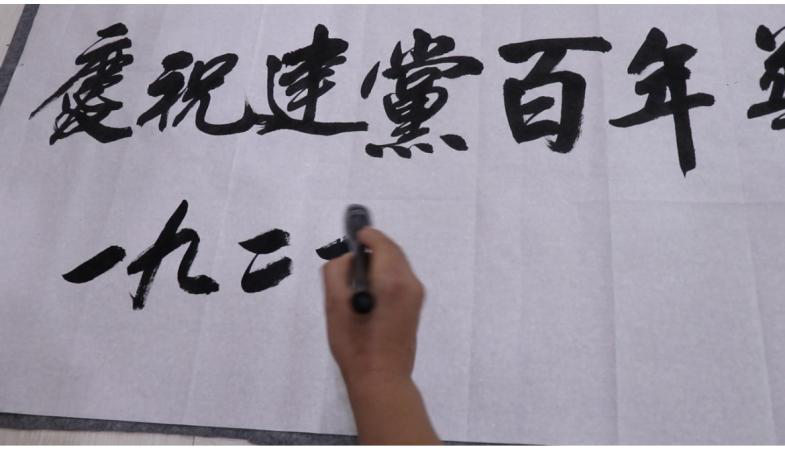 慶祝建黨百年
一九二一